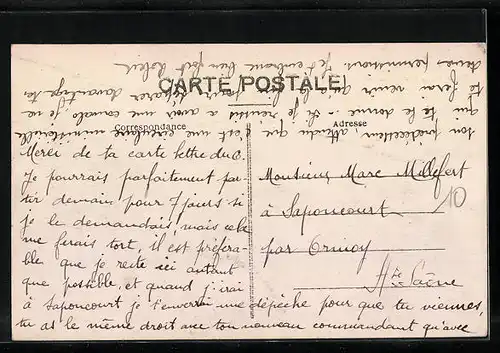 CARTE POSTALE
Correspondance
Adresse
Merci de ta carte lettre du 8.
Je pourrais parfaitement par
tir demain pour 7 jours si
je le demandais, mais cela
me ferais tort, il est préféra-
ble que je reste ici autant
que possible, et quand j'irai
à Saponcourt je t'enverrai une dépêche pour que tu viennes,
tu as le même droit avec ton nouveau commandant qu'avec
son prédécesseur, attendu que c'est une circulaire ministérielle
qui te le donne. Si je réussis à avoir une convalo, je
te ferai venir davantage tes
deux permissions. Je t'embrasse bien fort
Monsieur Marc Millefert
à Saponcourt
par Ormoy
Hte Saône
10